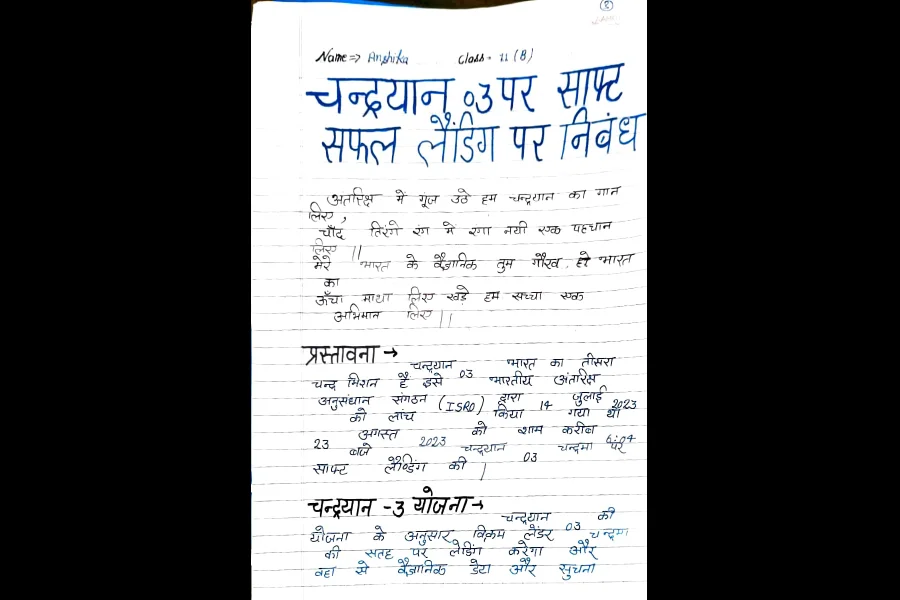 (2)
Name => Anshika Class - 11 (B)
चन्द्रयान 03 पर साफ्ट
सफल लैंडिंग पर निबंध
अतंरिक्ष में गूंज उठे हम चन्द्रयान का गान
लिए,
चाँद तिरंगे रंग मे रंगा नयी एक पहचान
लिए ||
मेरे भारत के वैज्ञानिक तुम गौरव हो भारत
का
ऊँचा माथा लिए खड़े हम सच्चा एक
अभिमान लिए ||
प्रस्तावना →
चन्द्रयान 03 भारत का तीसरा
चन्द्र मिशन है इसे भारतीय अंतरिक्ष
अनुसंधान संगठन (ISRO) द्वारा 14 जुलाई 2023
को लांच किया गया था
23 अगस्त 2023 को शाम करीब 6:04
बजे चन्द्रयान 03 चन्द्रमा पर
साफ्ट लैण्डिंग की |
चन्द्रयान -3 योजना →
चन्द्रयान 03 की
योजना के अनुसार विक्रम लेंडर चन्द्रमा
की सतह पर लेडिंग करेगा और
वहा से वैज्ञानिक डेटा और सुचना